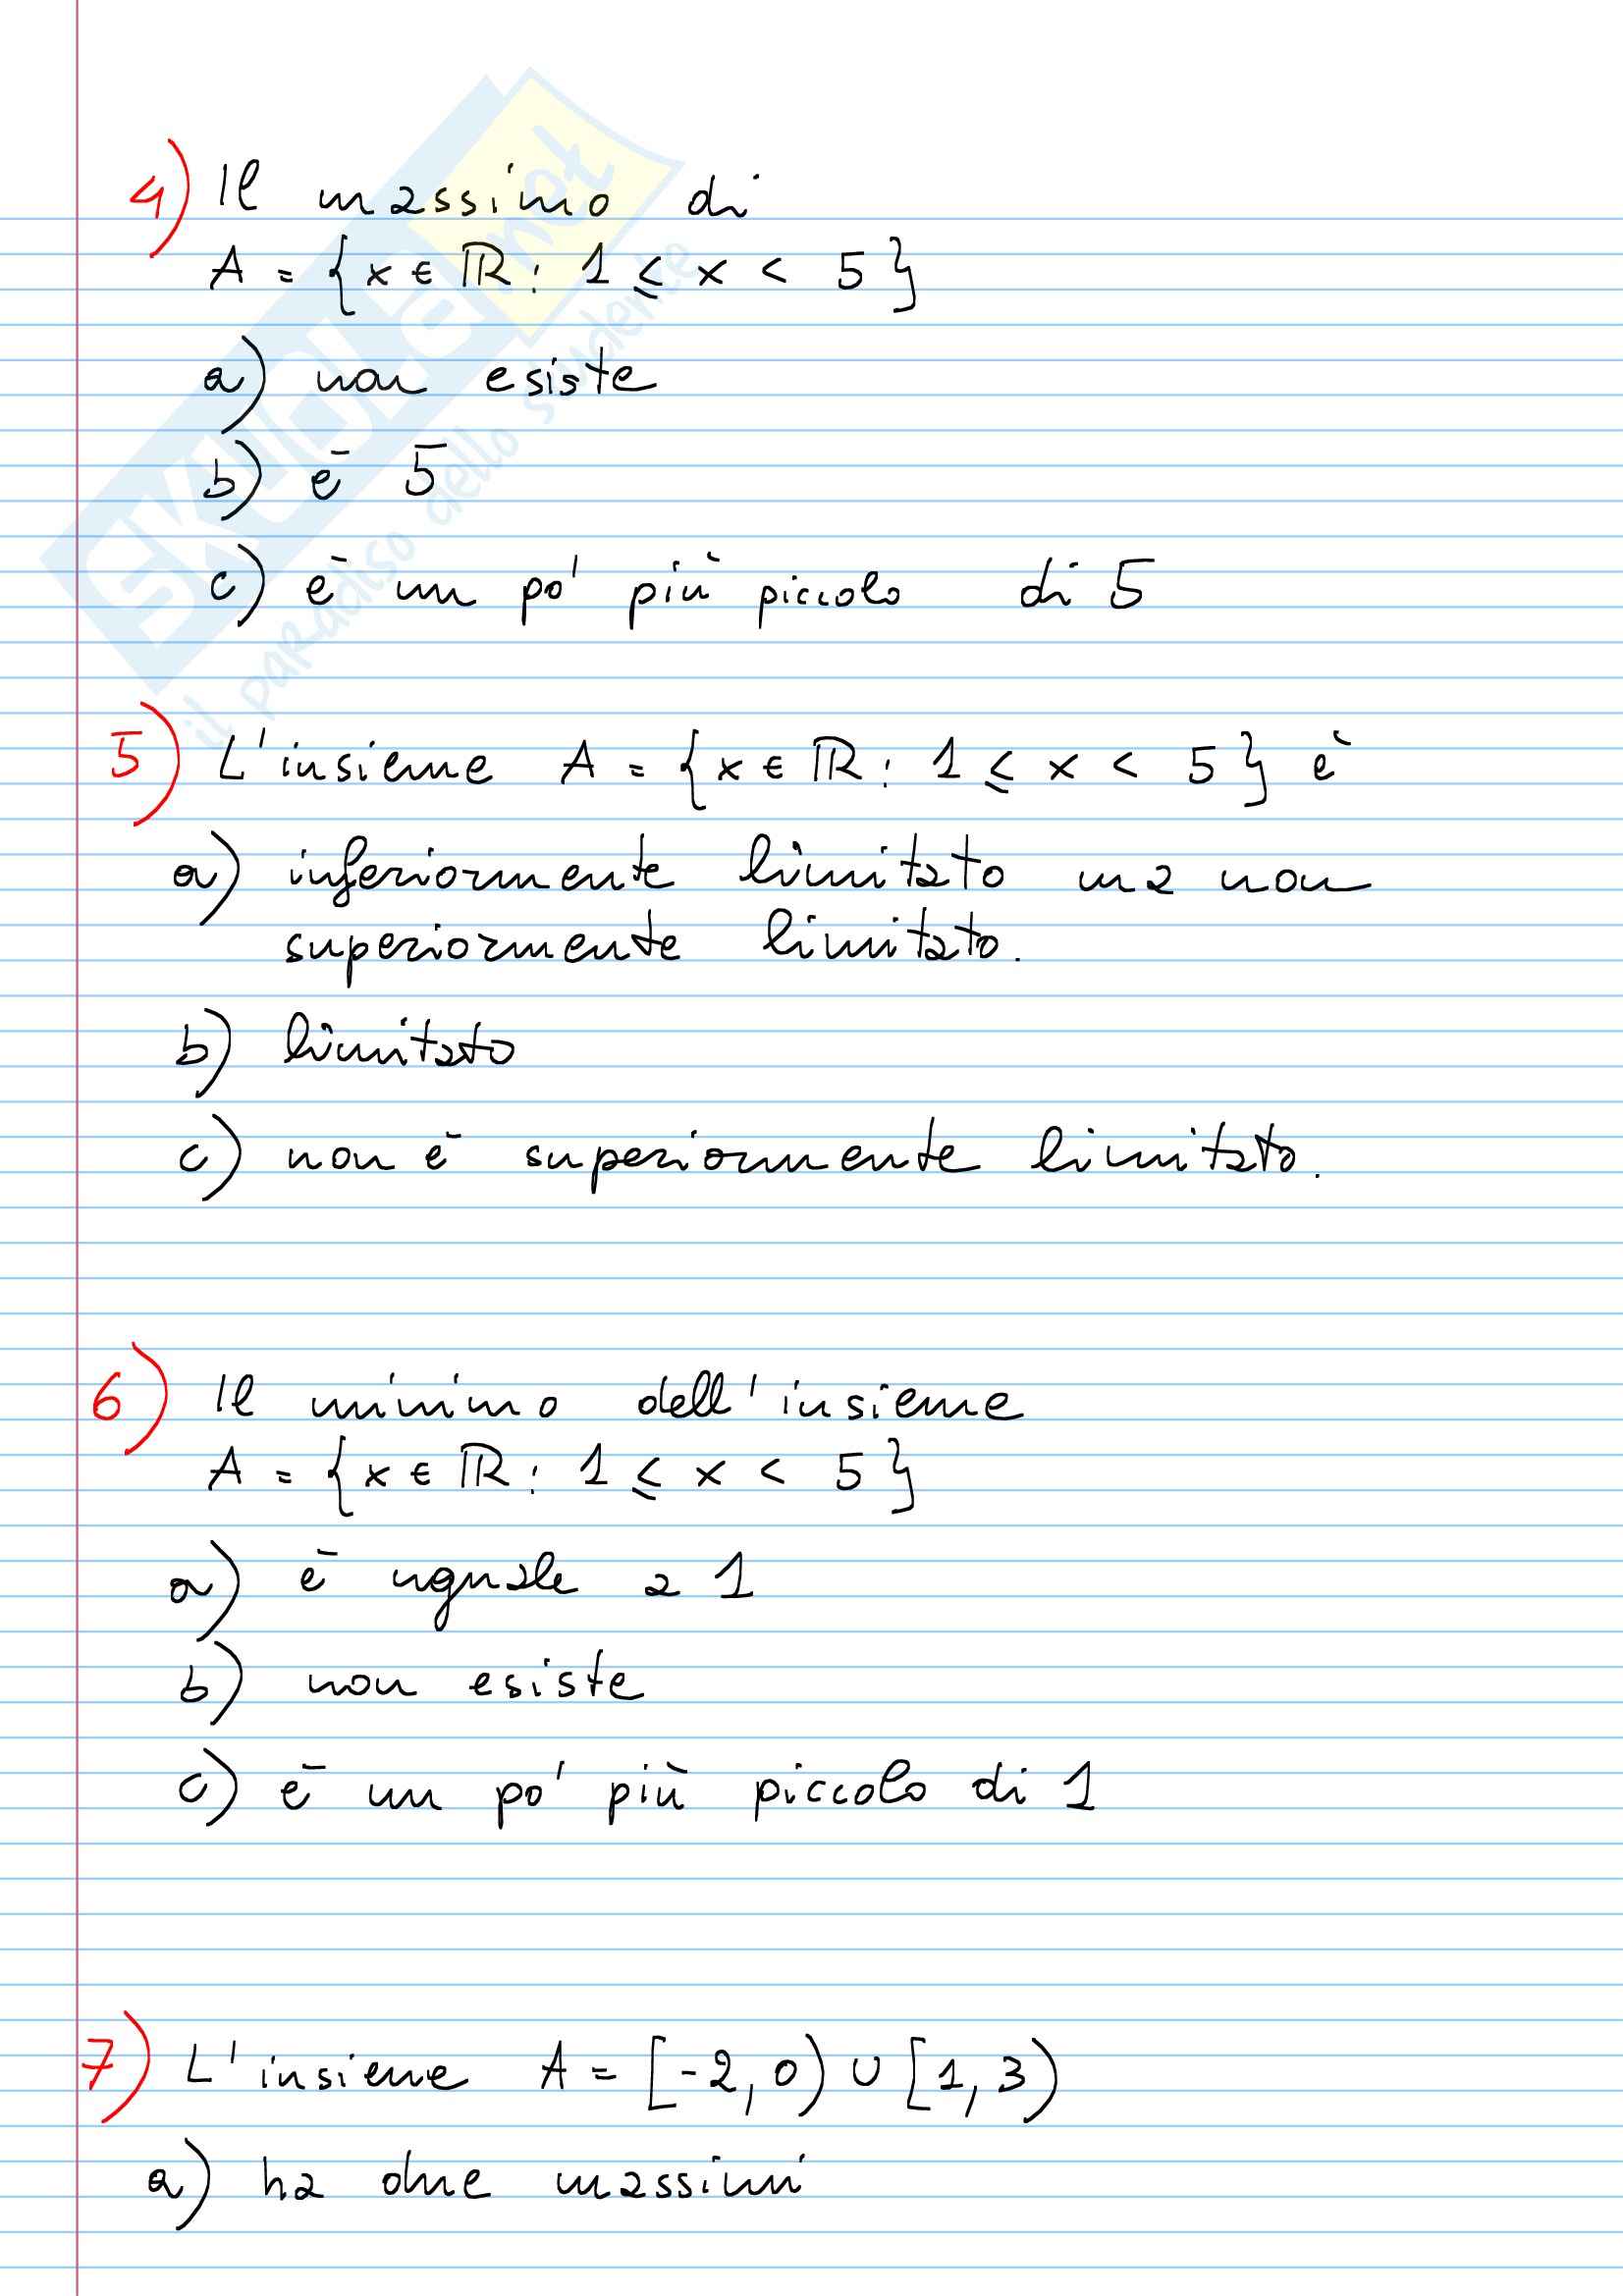 SKUOLA.net
il paradiso dello studente
4) Il massimo di
A = {x ∈ ℝ : 1 ≤ x < 5}
a) non esiste
b) è 5
c) è un po' più piccolo di 5
5) L'insieme A = {x ∈ ℝ : 1 ≤ x < 5} è
a) inferiormente limitato ma non
superiormente limitato.
b) limitato
c) non è superiormente limitato.
6) Il minimo dell'insieme
A = {x ∈ ℝ : 1 ≤ x < 5}
a) è uguale a 1
b) non esiste
c) è un po' più piccolo di 1
7) L'insieme A = [-2, 0) ∪ [1, 3)
a) ha due massimi